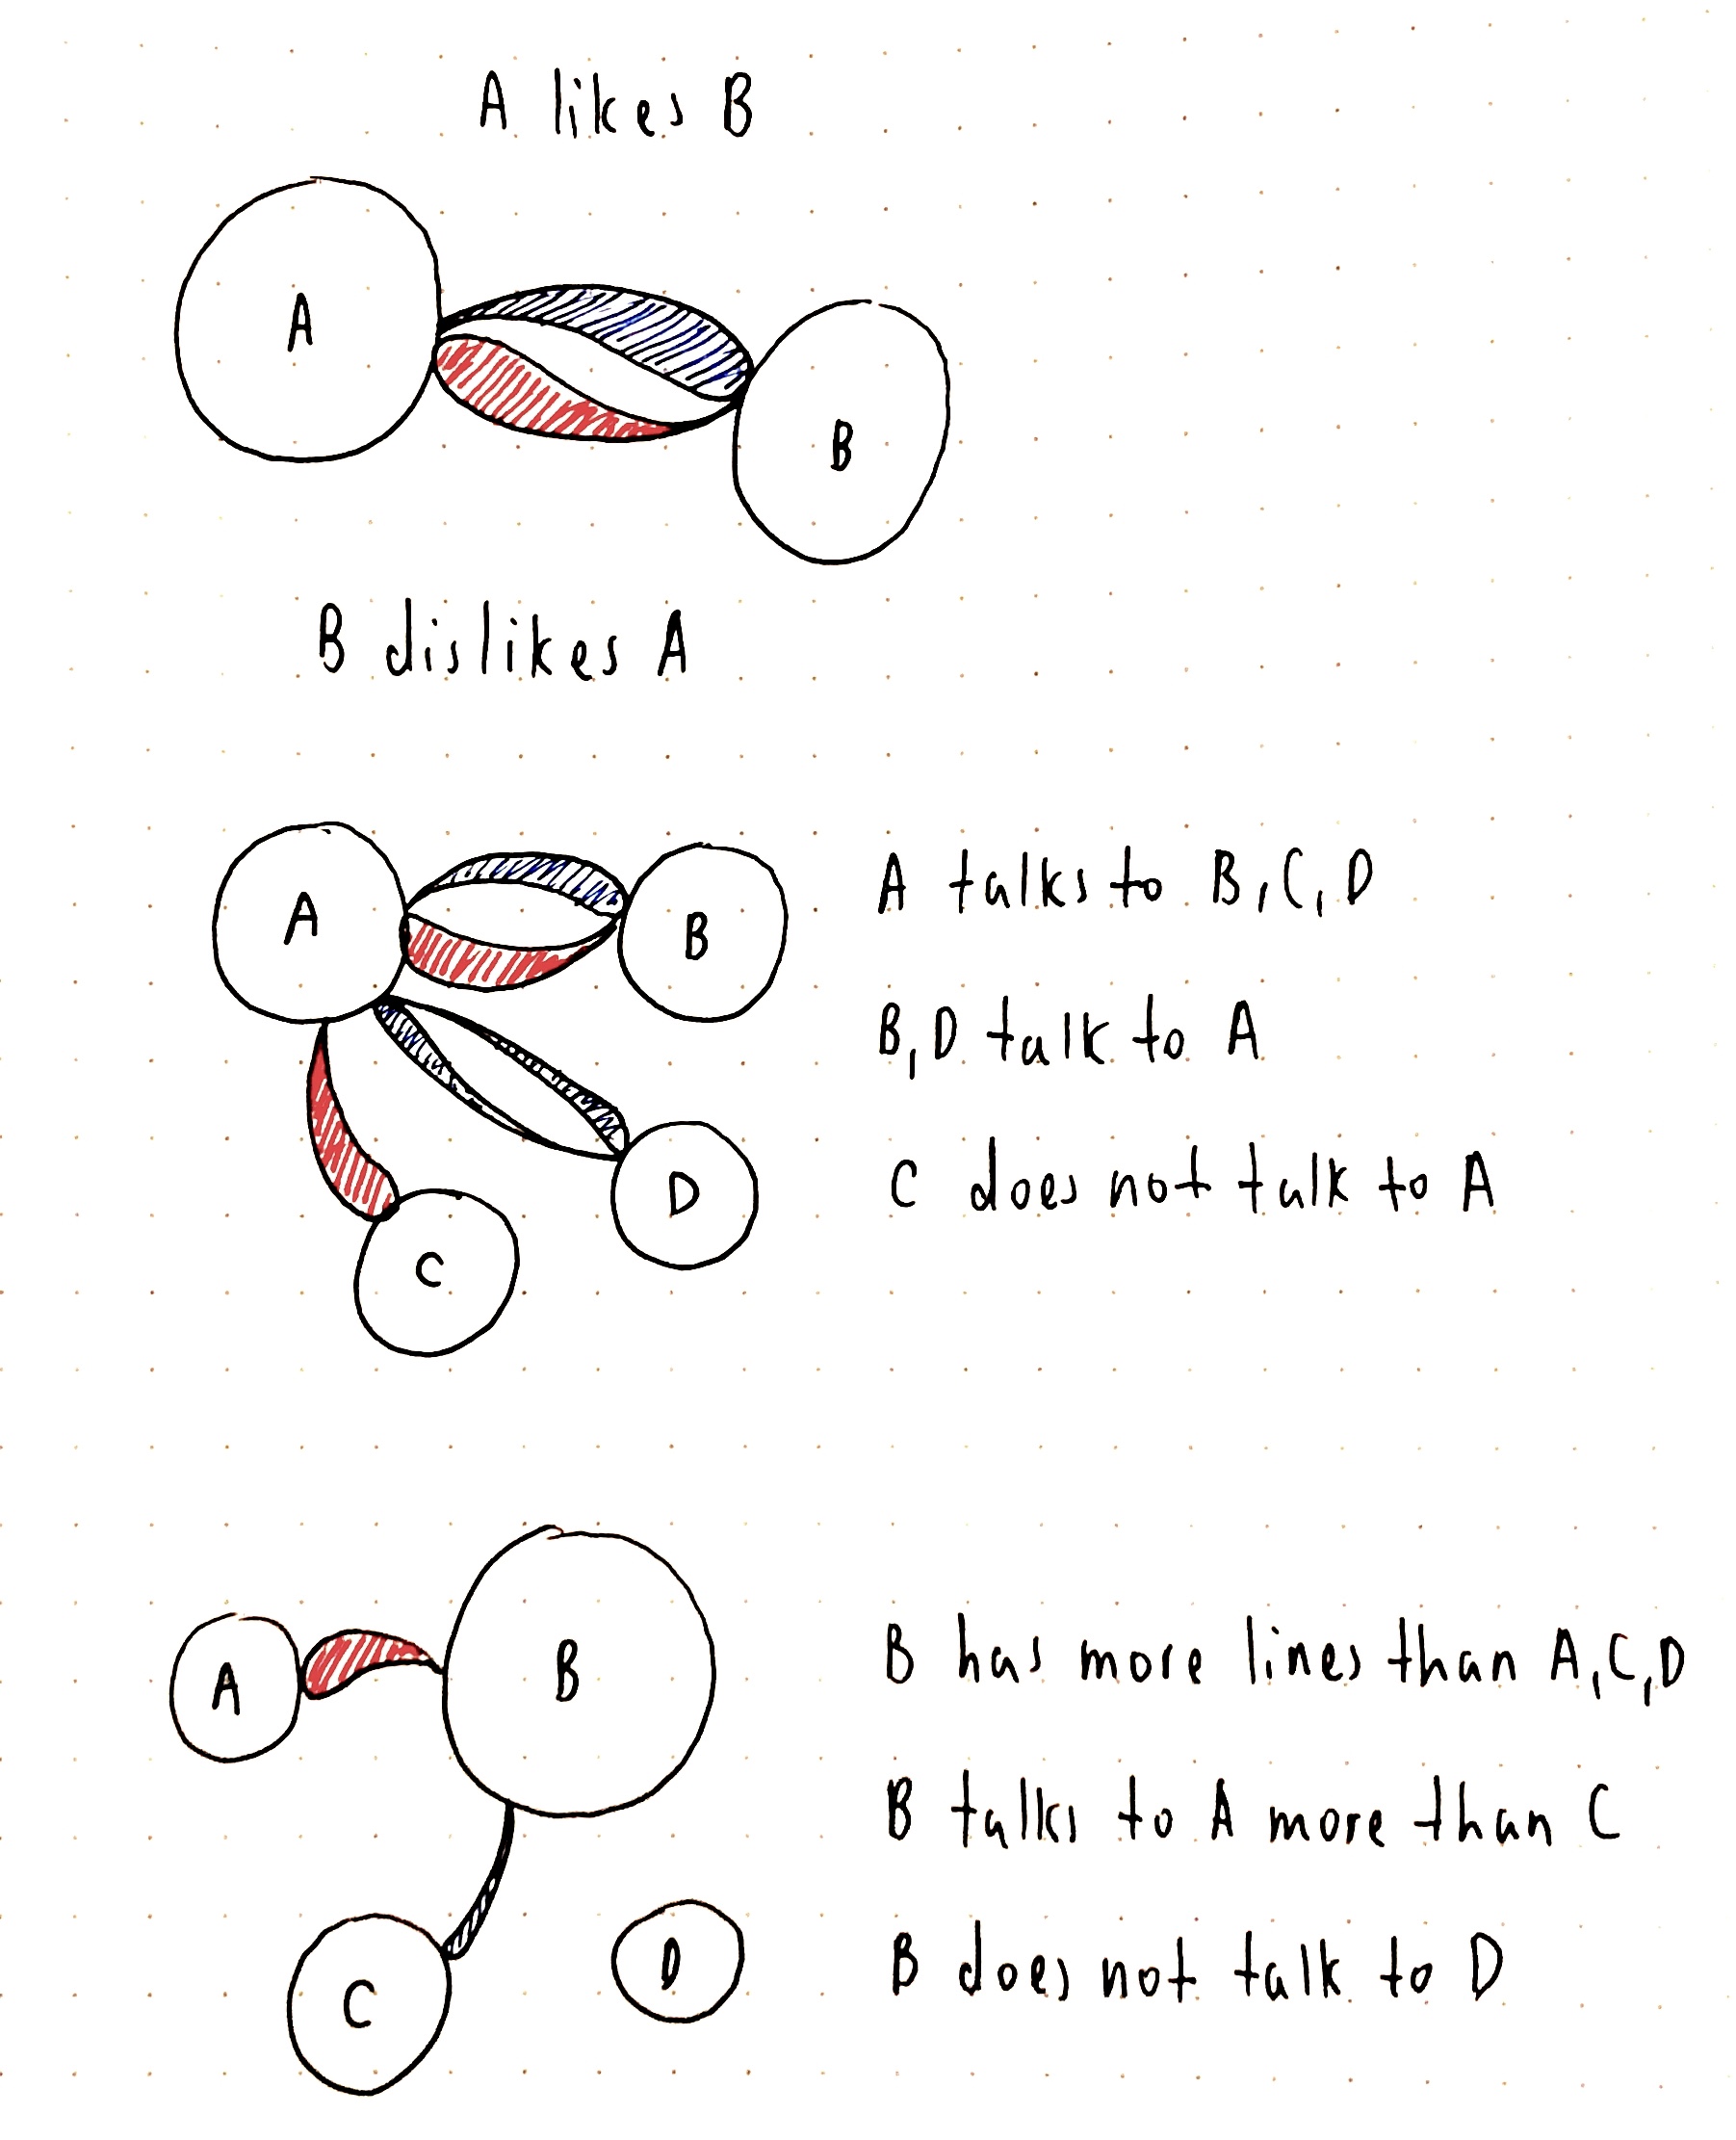 A likes B
A
B
B dislikes A
A
B
C
D
A talks to B, C, D
B, D talk to A
C does not talk to A
A
B
C
D
B has more lines than A, C, D
B talks to A more than C
B does not talk to D